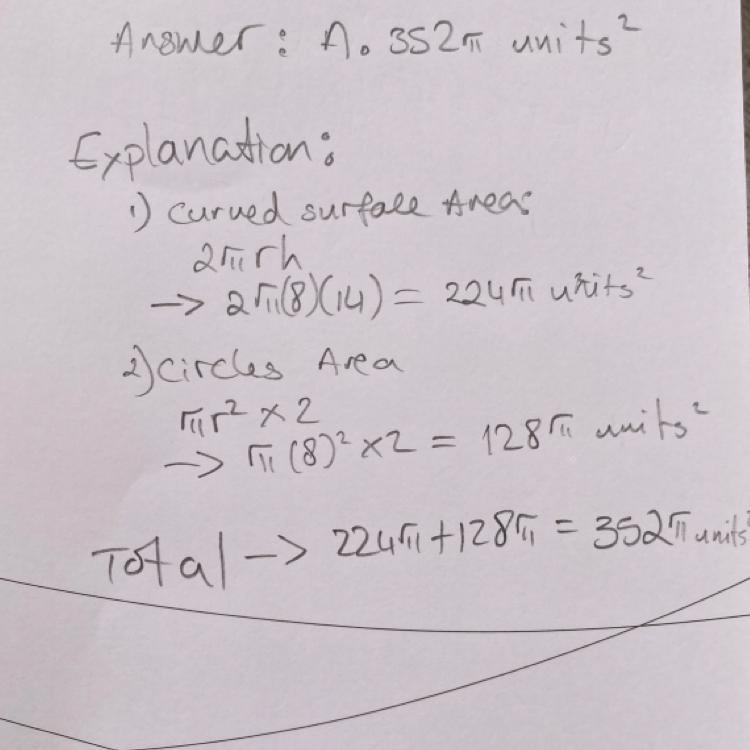 Answer: A. 352π units²
Explanation:
1) curved surface Area:
2πrh
→ 2π(8)(14) = 224π units²
2) circles Area
πr² × 2
→ π(8)² × 2 = 128π units²
Total → 224π + 128π = 352π units²